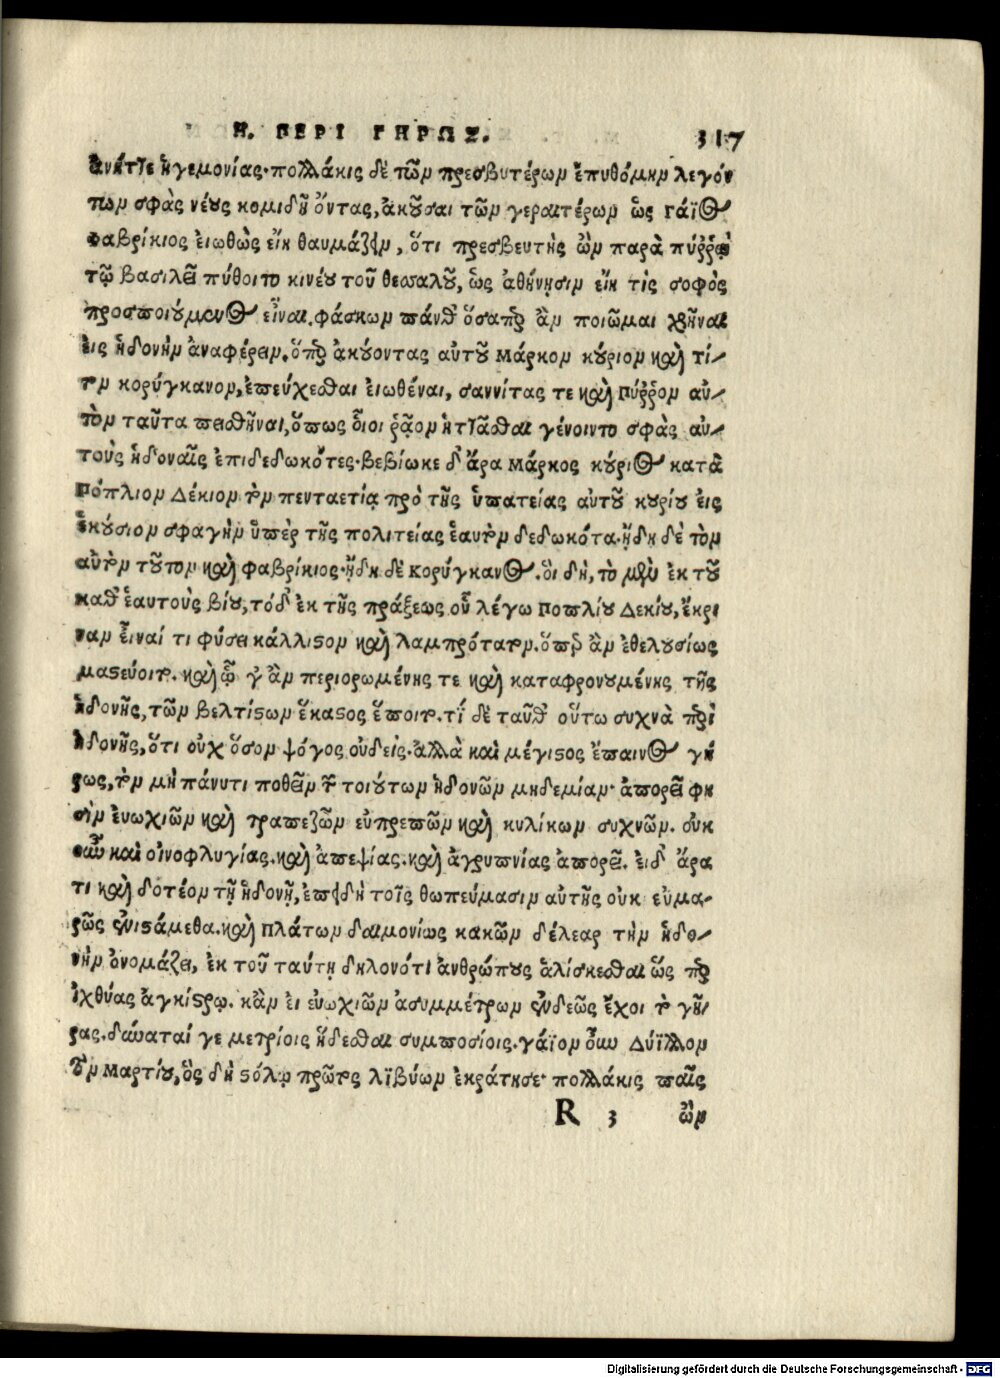 Η. ΠΕΡΙ ΓΗΡΩΣ. 317
ἀνήττε ἡγεμονίας· πολλάκις δὲ τῶν πρεσβυτέρων ἐπυθόμην λεγόν
των σφὰς νέους κομιδῇ ὄντας, ἀκοῦσαι τῶν γεραιτέρων ὡς γάϊος
φαβρίκιος εἰωθὼς εἴη θαυμάζειν, ὅτι πρεσβευτὴς ὢν παρὰ πύρρῳ
τῷ βασιλεῖ πύθοιτο κινέου τοῦ θεσσαλοῦ, ὡς ἀθήνησιν εἴη τὶς σοφὸς
προσποιούμενος εἶναι, φάσκων πάνθ' ὅσαπερ ἂν ποιῶμαι χρῆναι
εἰς ἡδονὴν ἀναφέρειν. ὅπερ ἀκούοντας αὐτοῦ Μάρκον κύριον καὶ τί-
τον κορύγκανον, ἐπεύχεσθαι εἰωθέναι, σαννίτας τε καὶ Πύρρον αὐ-
τὸν ταῦτα πεισθῆναι, ὅπως οἷοι ῥᾷον ἡττᾶσθαι γένοιντο σφὰς αὐ-
τοὺς ἡδοναῖς ἐπιδεδωκότες· βεβίωκε δ' ἄρα Μάρκος κύριος κατὰ
Πόπλιον Δέκιον τὸν πενταετίᾳ πρὸ τῆς ὑπατείας αὐτοῦ κυρίου εἰς
ἑκούσιον σφαγὴν ὑπὲρ τῆς πολιτείας ἑαυτὸν δεδωκότα· ᾔδη δὲ τὸν
αὐτὸν τοῦτον καὶ φαβρίκιος· ᾔδη δὲ κορύγκανος. οἳ δὴ, τὸ μὲν ἐκ τοῦ
καθ' ἑαυτοὺς βίου, τόδ' ἐκ τῆς πράξεως οὗ λέγω Ποπλίου Δεκίου, ἔκρι
ναν εἶναί τι φύσει κάλλιστον καὶ λαμπρότατον. ὅπερ ἂν ἐθελουσίως
μαστεύοιτο. καὶ ᾧ γ' ἂν περιορωμένης τε καὶ καταφρονουμένης τῆς
ἡδονῆς, τῶν βελτίστων ἕκαστος ἕποιτο. τί δὲ ταῦθ' οὕτω συχνὰ περὶ
ἡδονῆς, ὅτι οὐχ ὅσον ψόγος οὐδείς. ἀλλὰ καὶ μέγιστος ἔπαινος γή
ρως, τὸν μὴ πάνυτι ποθεῖν τ τοιούτων ἡδονῶν μηδεμίαν· ἀπορεῖ φη
σὶν εὐωχιῶν καὶ τραπεζῶν εὐπρεπῶν καὶ κυλίκων συχνῶν. οὐκ
οῦν καὶ οἰνοφλυγίας. καὶ ἀπεψίας. καὶ ἀγρυπνίας ἀπορεῖ. εἰδ' ἄρα
τι καὶ δοτέον τῇ ἡδονῇ, ἐπειδὴ τοῖς θωπεύμασιν αὐτῆς οὐκ εὐμα-
ρῶς ἐνιστάμεθα. καὶ Πλάτων δαιμονίως κακῶν δέλεαρ τὴν ἡδο-
νὴν ὀνομάζει, ἐκ τοῦ ταύτῃ δηλονότι ἀνθρώπους ἁλίσκεσθαι ὥς περ
ἰχθύας ἀγκίστρῳ. κἂν εἰ εὐωχιῶν ἀσυμμέτρων ἐνδεῶς ἔχοι τὸ γῆ-
ρας. δύναταί γε μετρίοις ἥδεσθαι συμποσίοις. γάϊον οὖν Δύϊλλον
τὸν Μαρτίου, ὃς δὴ στόλῳ πρῶτος λϊβύων ἐκράτησε· πολλάκις παῖς
R 3 ὢν
Digitalisierung gefördert durch die Deutsche Forschungsgemeinschaft - DFG